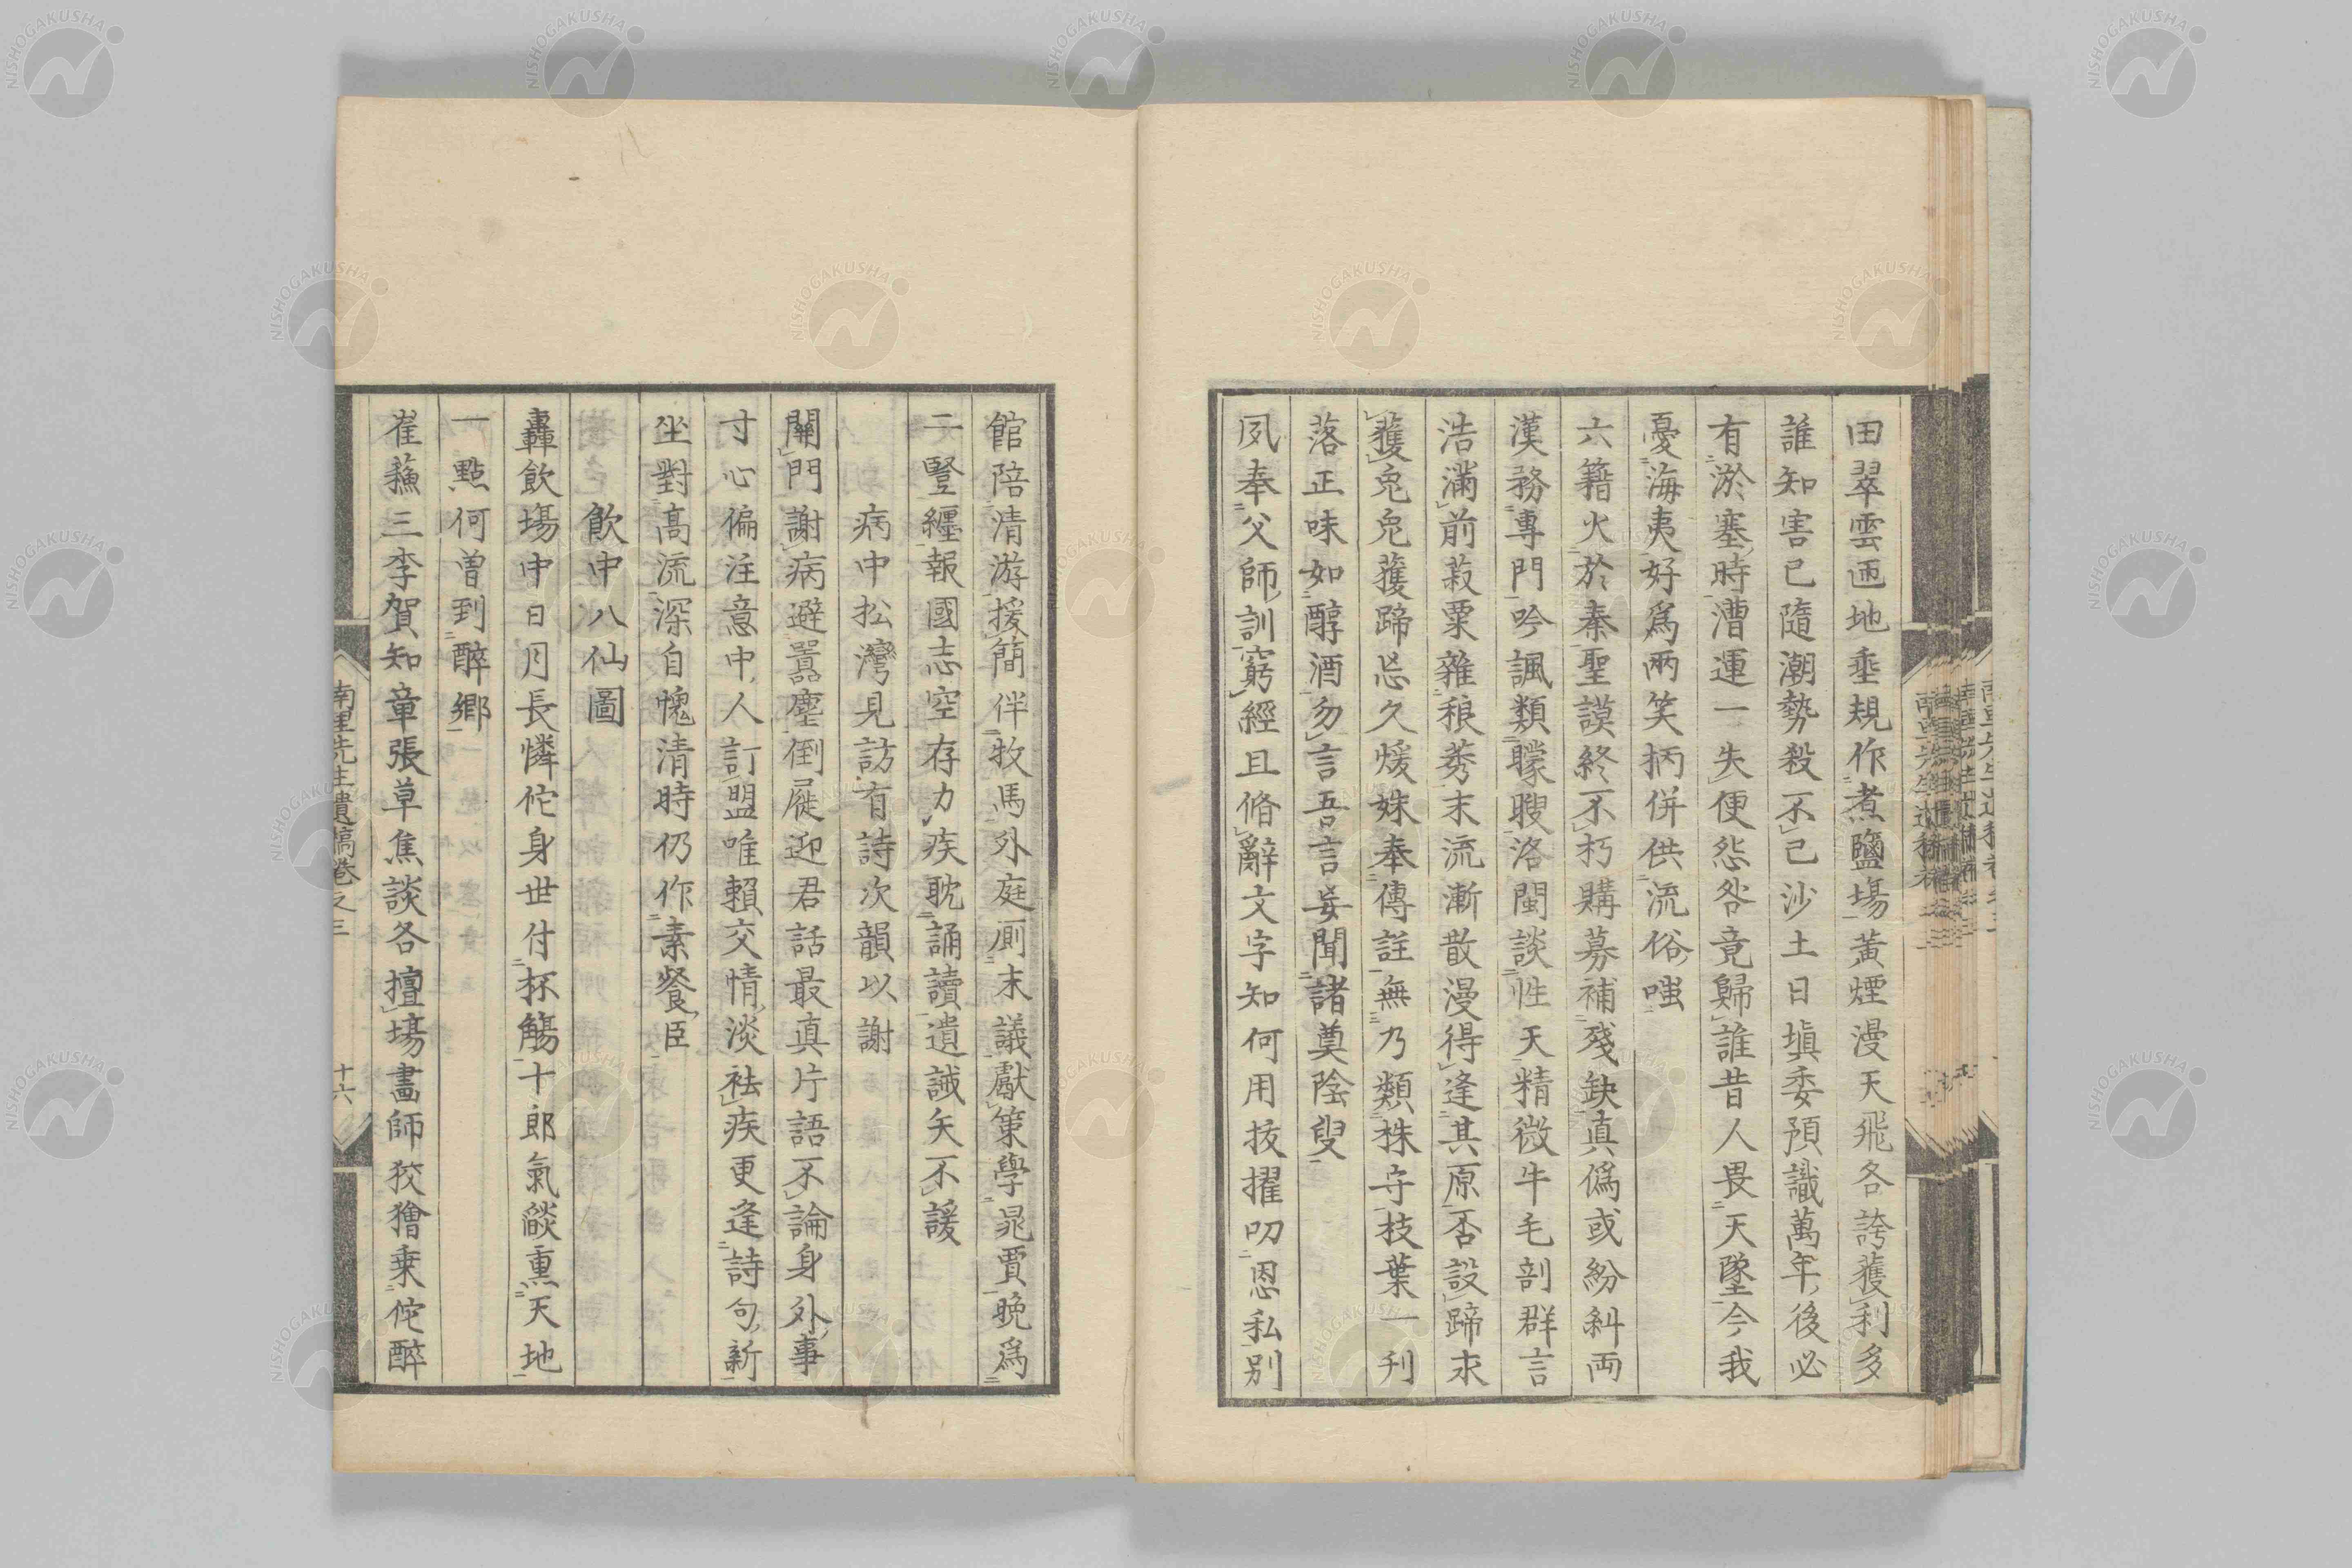 田翠雲迊地垂規作煮鹽場黃煙漫天飛各誇獲利多
誰知害已隨潮勢殺不已沙土日塡委預識萬年後必
有淤塞時漕運一失便怨咎竟歸誰昔人畏天墜今我
憂海夷好爲兩笑柄併供流俗嗤
六籍火於秦聖謨終不朽購募補殘缺真僞或紛糾両
漢務專門吟諷類矇瞍洛閩談性天精微牛毛剖群言
浩滿前菽粟雜稂莠末流漸散漫得逢其原否設蹄求
獲兎兎獲蹄忘久煖姝奉傳註無乃類株守枝葉一刋
落正味如醇酒勿言吾言妄聞諸奠陰叟
夙奉父師訓窮經且脩辭文字知何用拔擢叨恩私別
館陪清游援簡伴牧馬外庭厠末議獻策學晁賈晩爲
二豎纏報國志空存力疾耽誦讀遺誡矢不諼
病中松灣見訪有詩次韻以謝
關門謝病避囂塵倒屣迎君話最真片語不論身外事
寸心偏注意中人訂盟唯賴交情淡祛疾更逢詩句新
坐對高流深自愧清時仍作素餐臣
飮中八仙圖
轟飮場中日月長憐佗身世付杯觴十郎氣燄熏天地
一點何曽到醉鄉
崔蘇三李賀知章張草焦談各擅場畵師狡獪乗佗醉
南里先生遺稿卷之三
十六